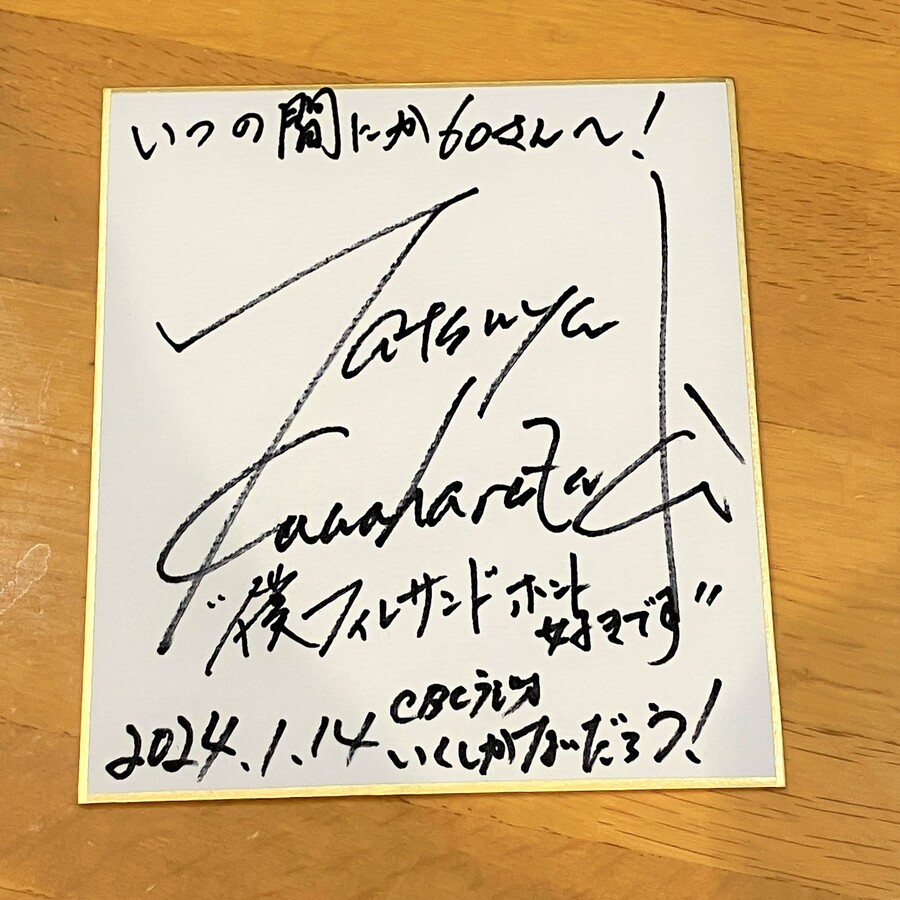 いつの間にか60さんへ!
Tatsuya
"僕フィレサンドホント
好きです"
CBCラジオ
2024.1.14 いくしかないだろう!